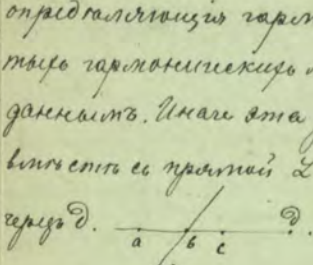 опредѣляющихъ гарм
тыхъ гармоническихъ
даннымъ. Иначе эта
вмѣстѣ съ прямой L
черезъ d. a b c d